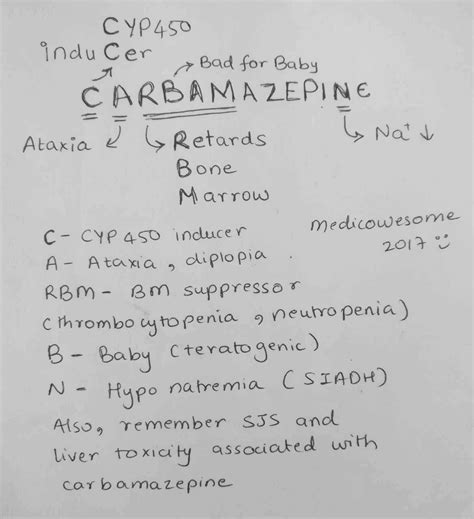 CYP450
induCer
Bad for Baby
CARBAMAZEPINE
Ataxia
Retards
Na+ ↓
Bone
Marrow
medicowesome
2017
C - CYP 450 inducer
A - Ataxia, diplopia.
RBM - BM suppressor
(thrombocytopenia, neutropenia)
B - Baby (teratogenic)
N - Hyponatremia (SIADH)
Also, remember SJS and
liver toxicity associated with
carbamazepine